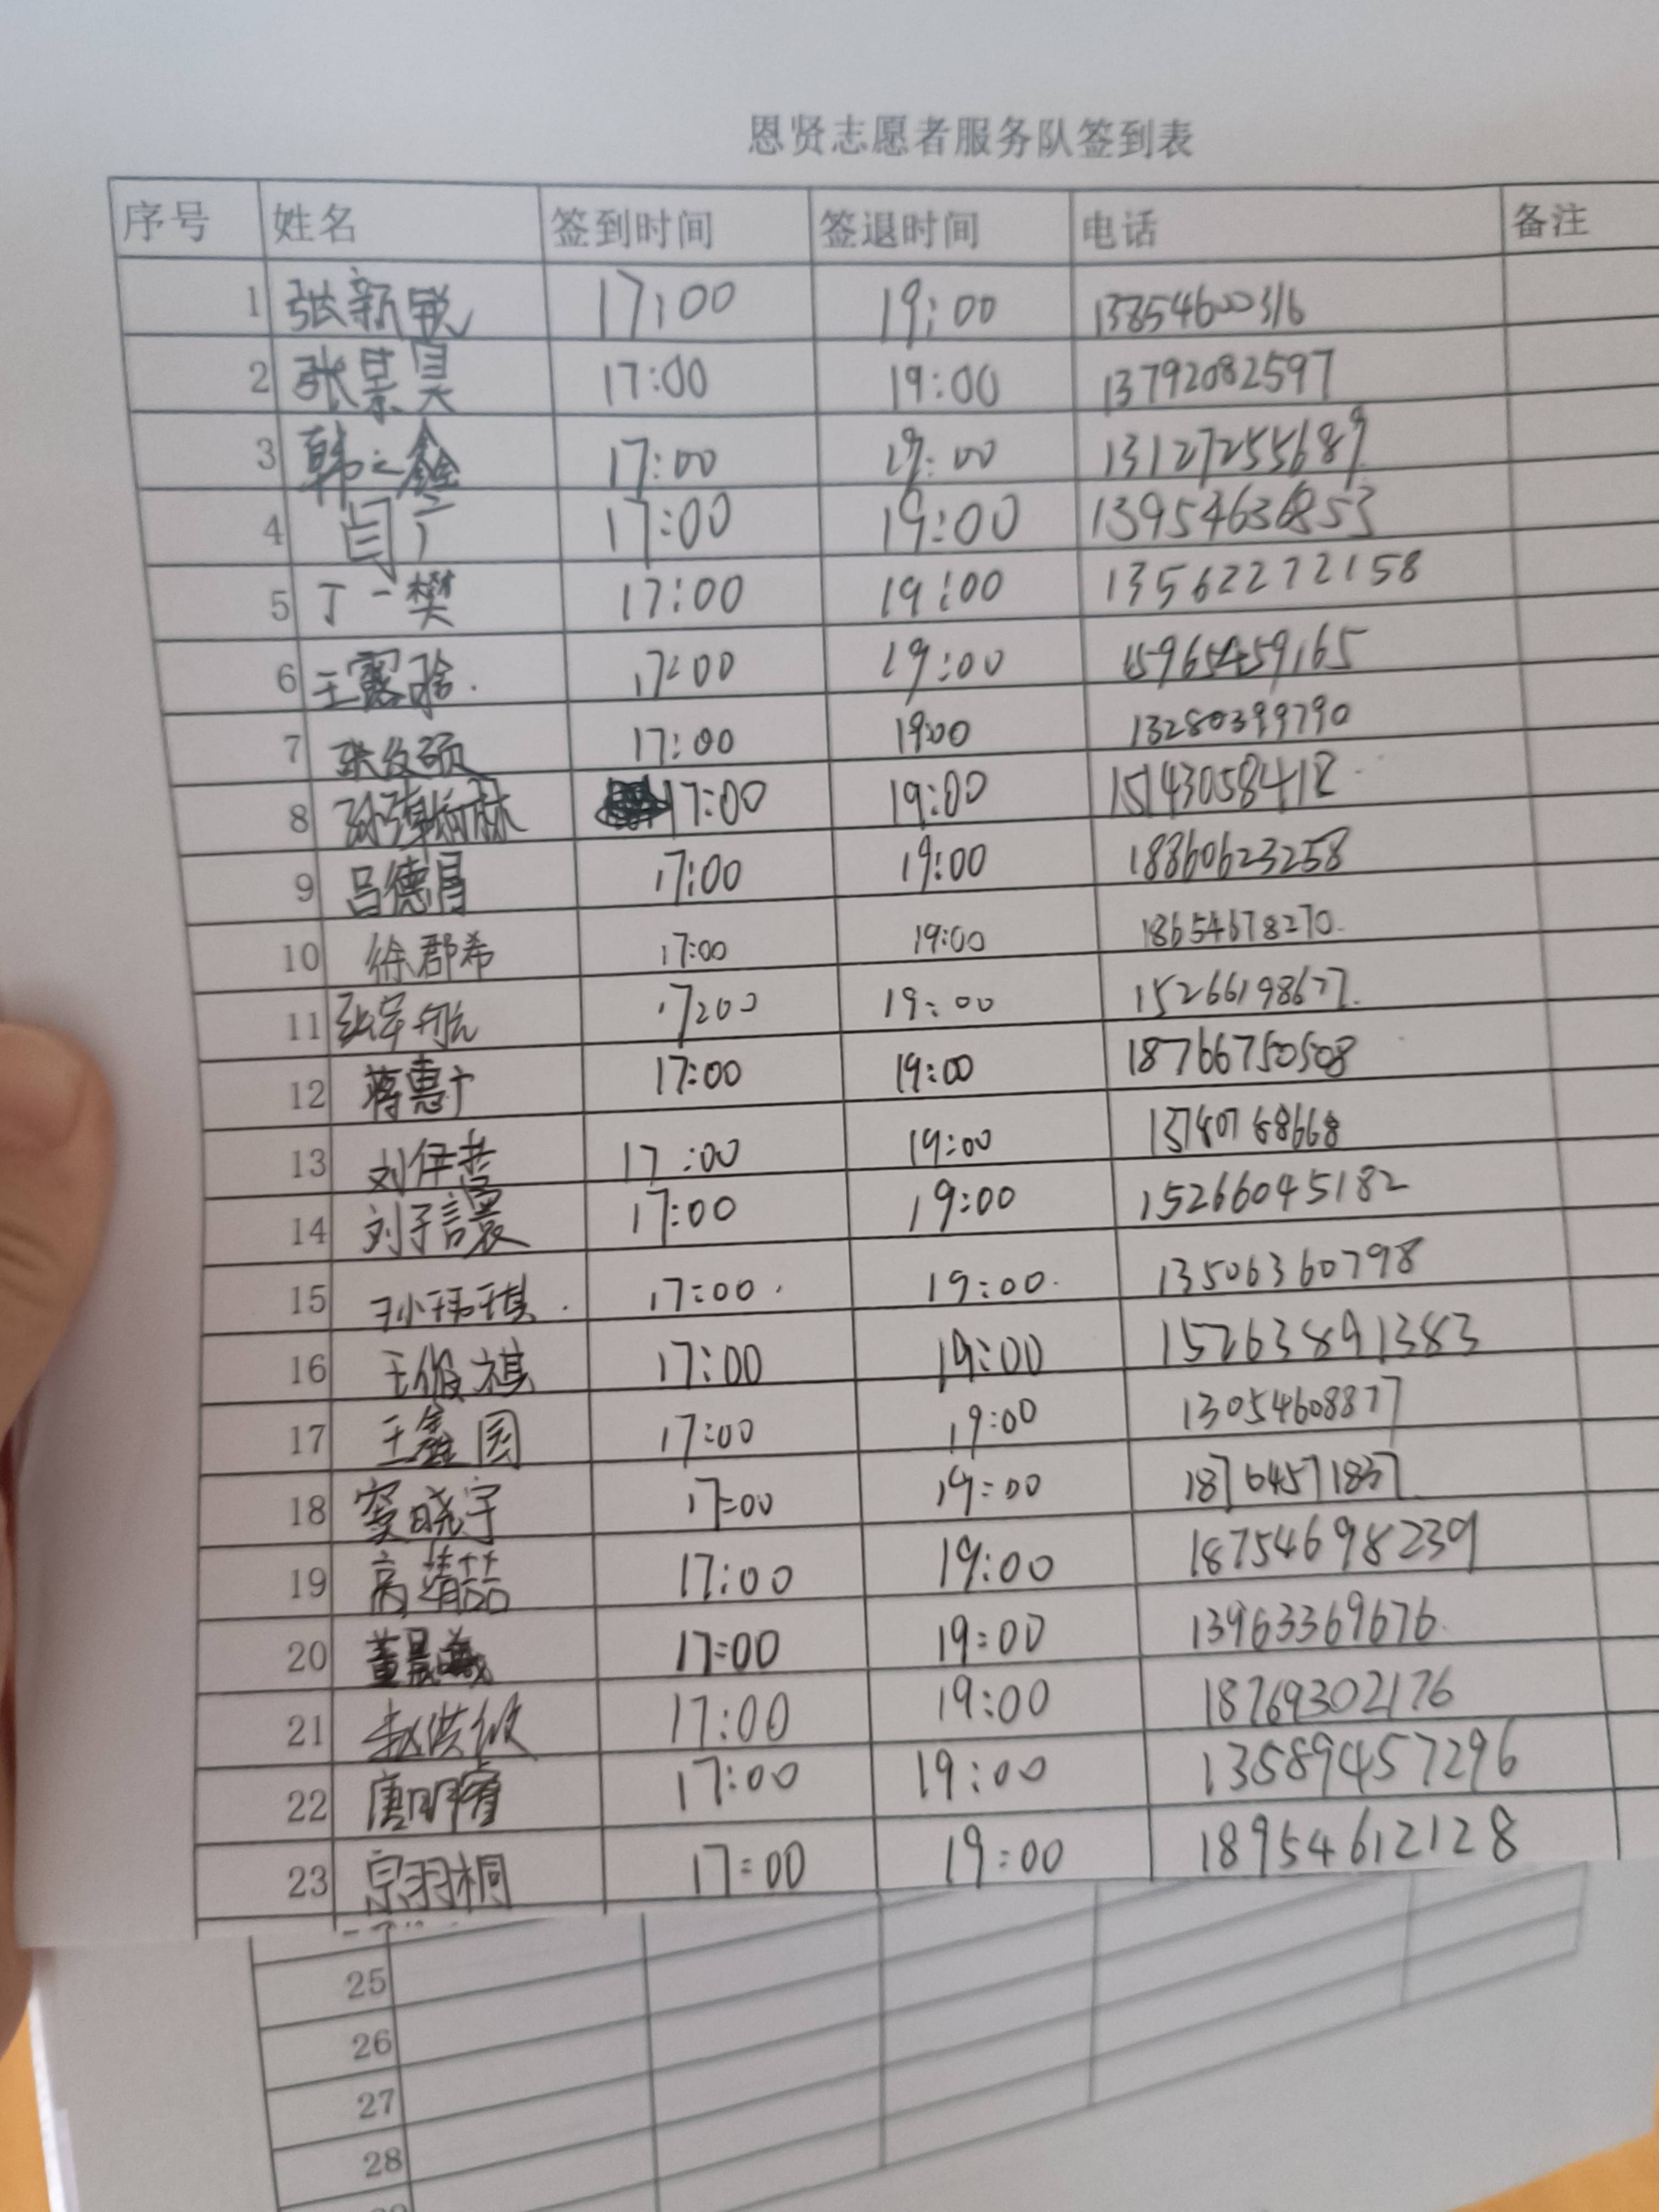 恩贤志愿者服务队签到表
序号 姓名 签到时间 签退时间 电话 备注
1 张新锐 17:00 19:00 13854600316
2 张景昊 17:00 19:00 13792082597
3 韩之鑫 17:00 19:00 13127255689
4 闫 17:00 19:00 13954636853
5 丁一樊 17:00 19:00 13562272158
6 王露 17:00 19:00 15965459165
7 张 硕 17:00 19:00 13280399790
8 17:00 19:00 15143058412
9 吕德昌 17:00 19:00 18860623258
10 徐郡希 17:00 19:00 18654678270
11 张宇航 17:00 19:00 15266198677
12 蒋惠 17:00 19:00 18766750508
13 刘伊 17:00 19:00 13780768668
14 刘子 17:00 19:00 15266045182
15 孙玮琪 17:00 19:00 13506360798
16 王俊祺 17:00 19:00 15263891383
17 王鑫圆 17:00 19:00 13054608877
18 窦晓宇 17:00 19:00 18764571837
19 高婧喆 17:00 19:00 18754698239
20 董晨 17:00 19:00 13963369676
21 赵洪 17:00 19:00 18769302176
22 唐明睿 17:00 19:00 13589457296
23 宗羽桐 17:00 19:00 18954612128
25
26
27
28